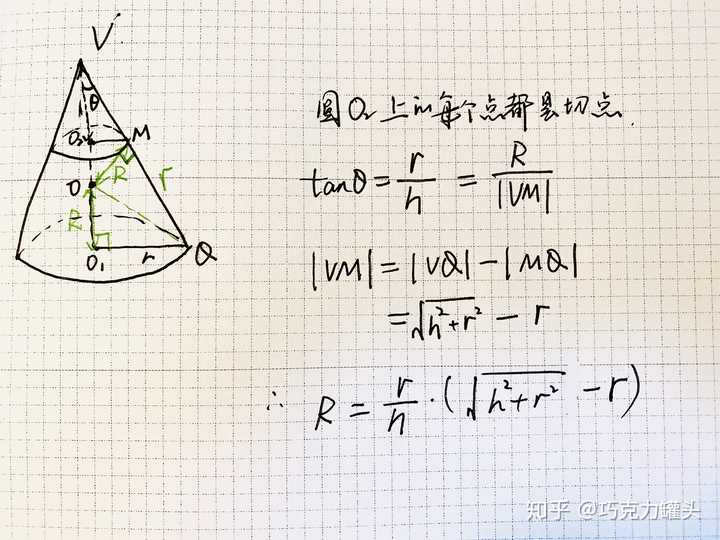 V
θ
O₂
M
O
R
r
R
O₁
r
Q
圆O₂上的每个点都是切点.
tanθ = r/h = R/|VM|
|VM| = |VQ| - |MQ|
= √(h²+r²) - r
∴ R = r/h · (√(h²+r²) - r)
知乎 @巧克力罐头